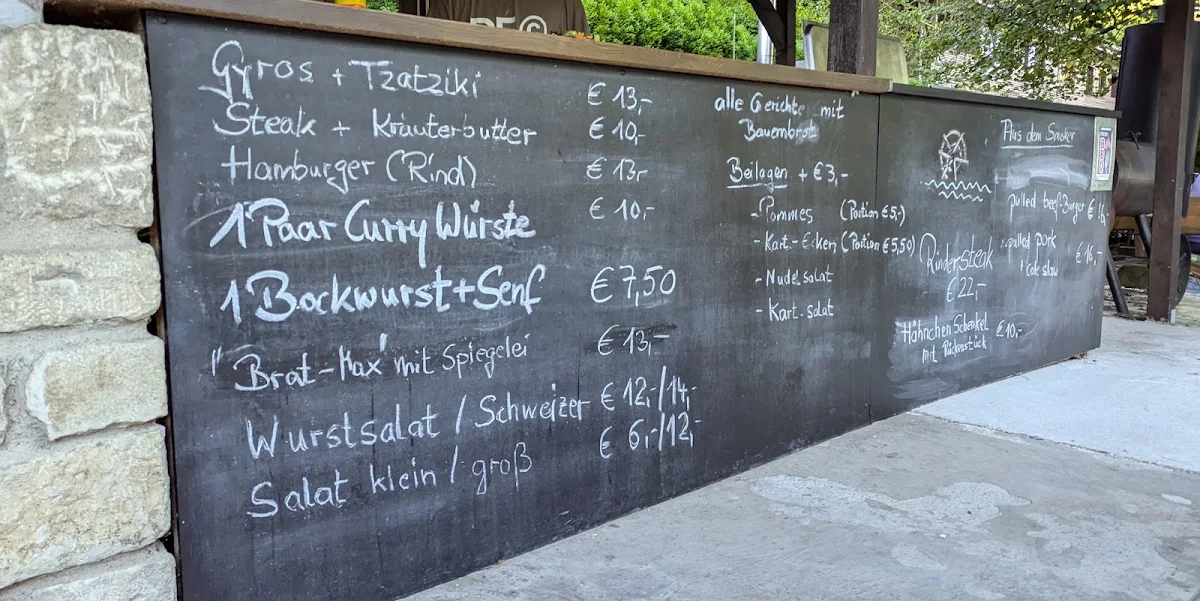 Gyros + Tzatziki € 13,-
Steak + Kräuterbutter € 10,-
Hamburger (Rind) € 13,-
1 Paar Curry Würste € 10,-
1 Bockwurst + Senf € 7,50
"Brat-Max" mit Spiegelei € 13,-
Wurstsalat / Schweizer € 12,-/14,-
Salat klein / groß € 6,-/12,-
alle Gerichte mit
Bauernbrot
Beilagen + € 3,-
- Pommes (Portion € 5,-)
- Kart.-Ecken (Portion € 5,50)
- Nudelsalat
- Kart.salat
Aus dem Smoker
pulled beef Burger €
pulled pork € 16,-
+ cole slaw
Rindersteak
€ 22,-
Hähnchen Schenkel € 10,-
mit Rückenstück